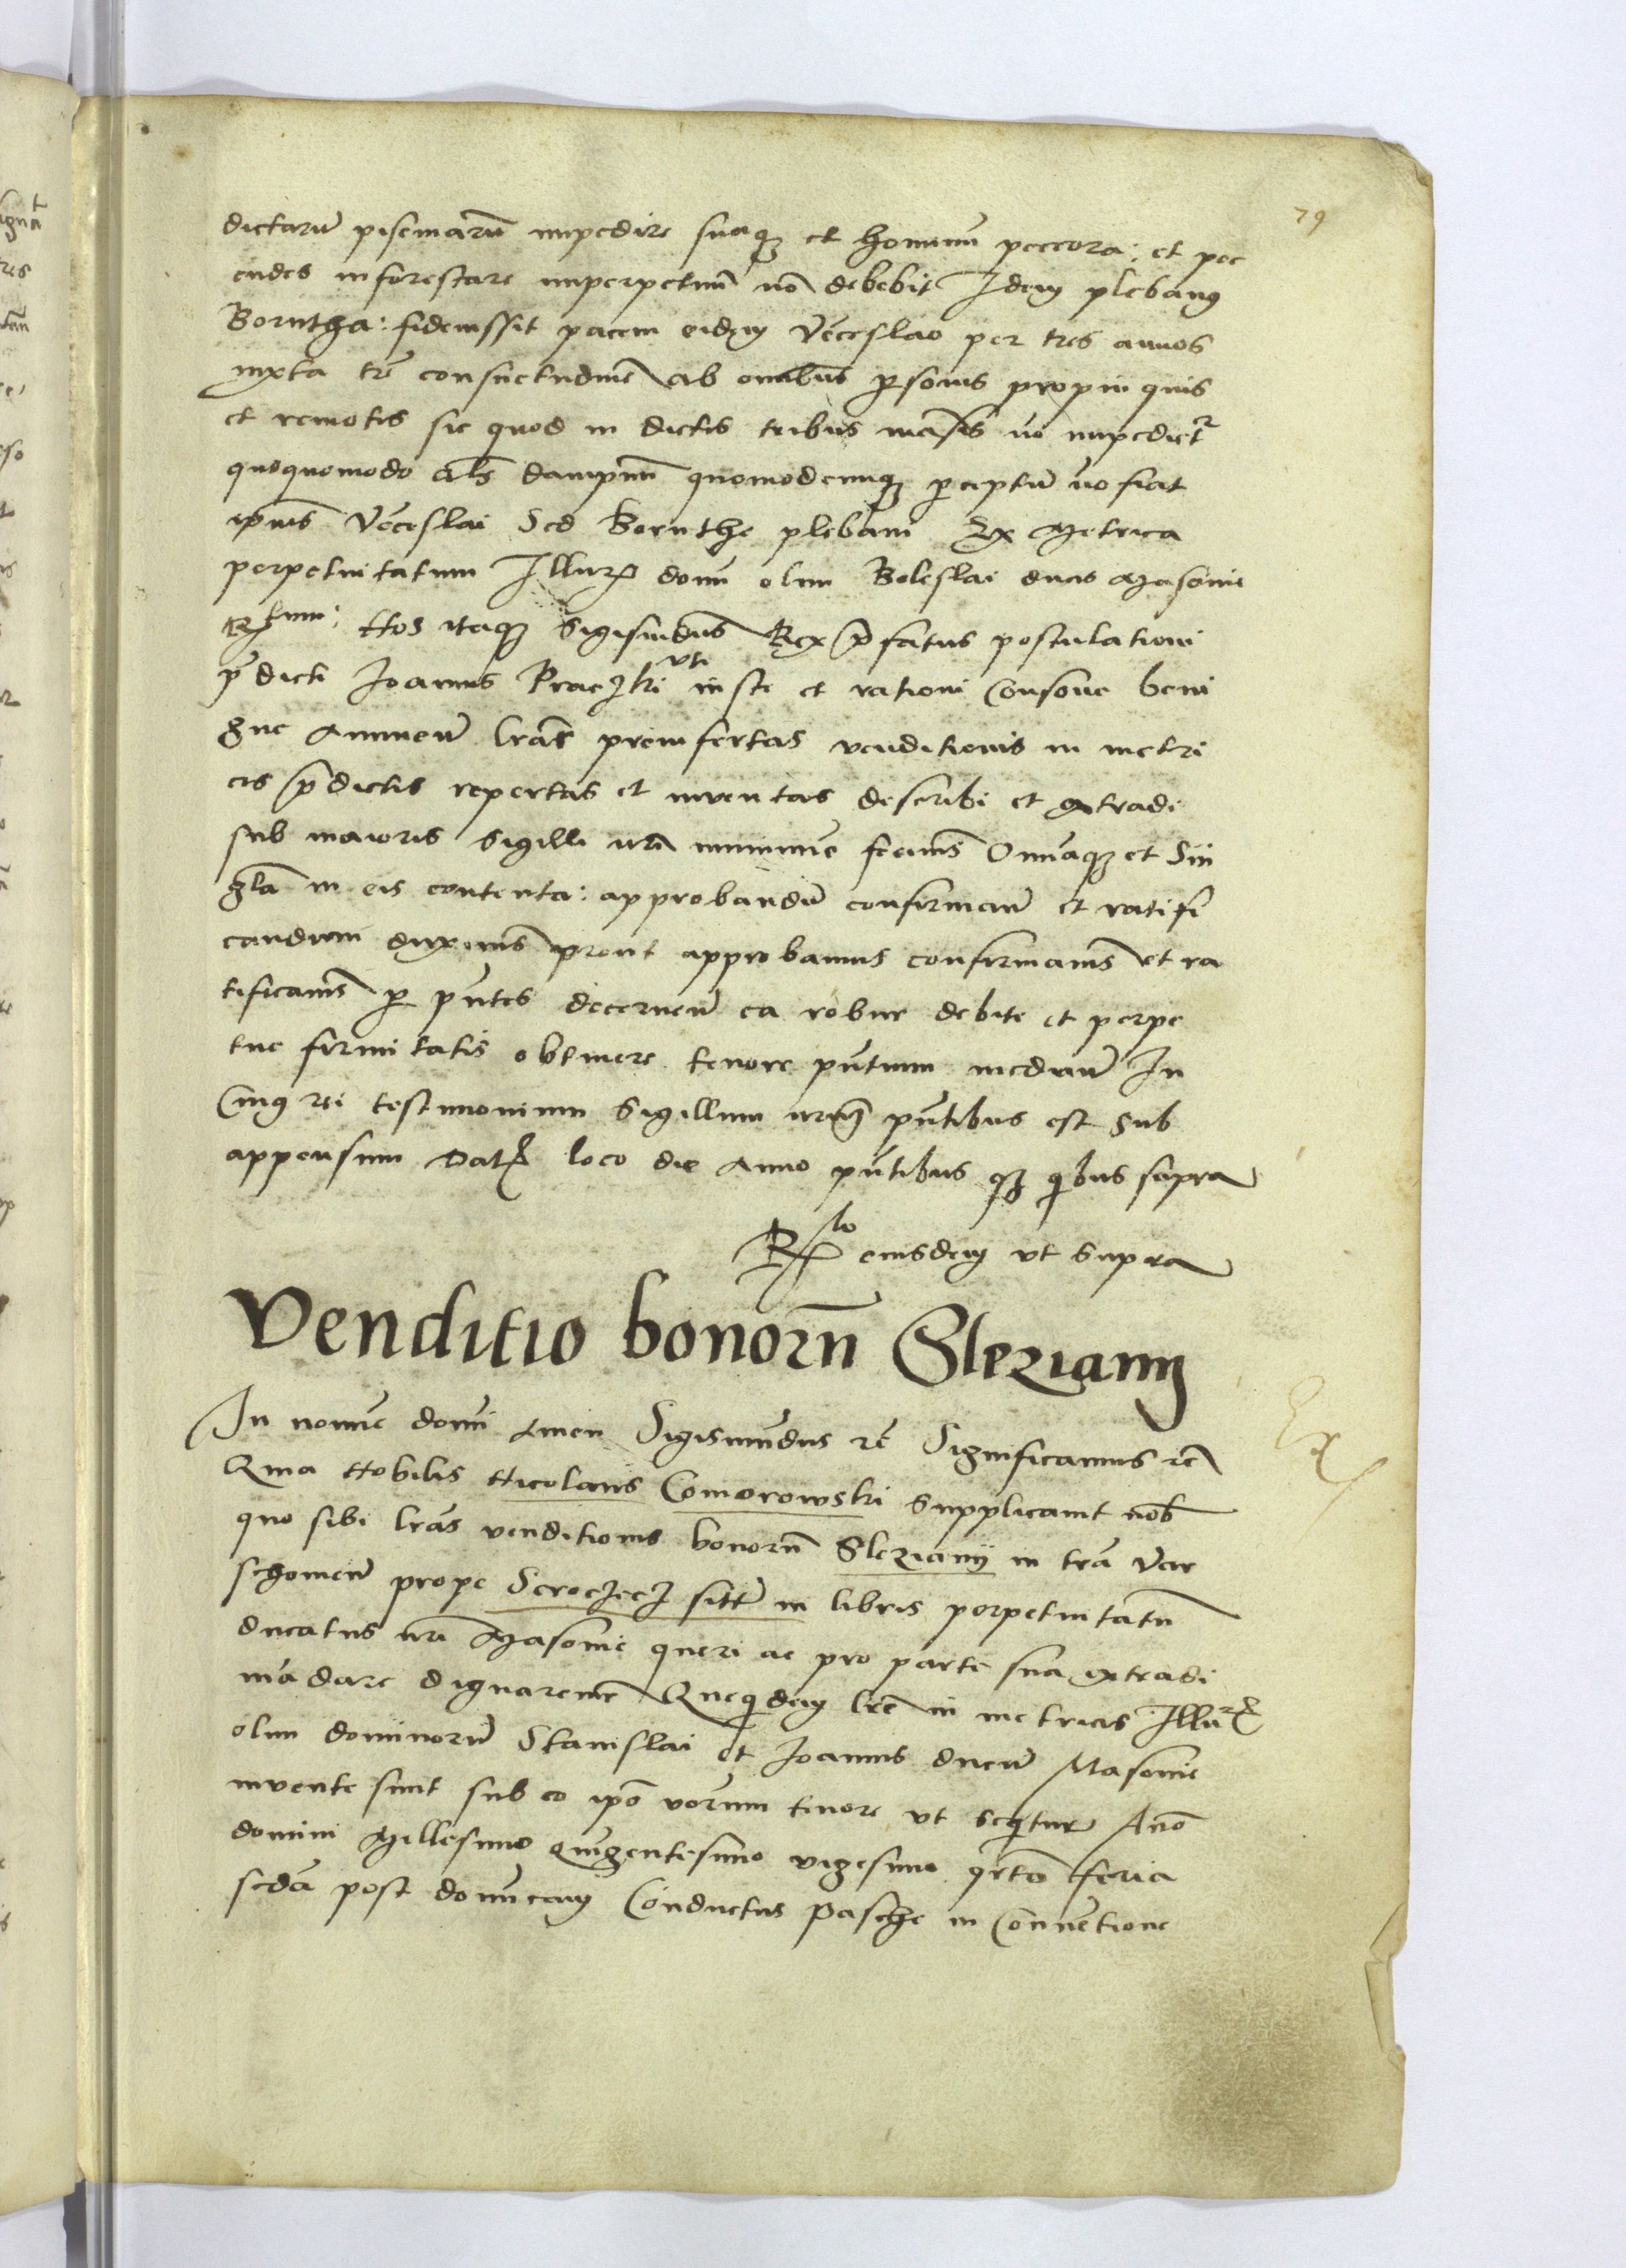 79
dictarū piscinarū impedire suaqȝ et hominū peccora: et pec
cudes inforestare imperpetuū nō debebit Idem plebanꝰ
Borutha: fideiussit pacem eidem Vēceslao per tres annos
iuxta tr̄e consuetudinē ab om̄ibus ꝑsonis propinquis
et remotis sic quod in dictis tribus māsis nō impediet᷑
quoquomodo Als dampnū quomodcūqȝ ꝑceptū nō fiat
ip̄ius Vēceslai Sed Boruthe plebani Ex Metrica
perpetuitatum Illurꝫ domī olim Boleslai ducis Masouie
Rtum: Nos itaqȝ Sigismūdus Rex p̄fatus postulationi
p̄dicti Joannis Praczki vti iuste et rationi Consone beni
gne Annuen̄ lrās preinsertas venditionis in metri
cis p̄dictis repertas et inuentas describi et extradi
sub maioris Sigilli nr̄i munimine fecimꝰ Omniaqȝ et Sin
gl̄a in eis contenta: approbandū confirman̄ et ratifi
candum duximꝰ prout approbamus confirmamꝰ et ra
tificamꝰ ꝑ pn̄tes decernen̄ ea robur debite et perpe
tue firmitatis obtinere tenore pn̄tium median̄ In
Cuiꝰ rei testimonium Sigillum nrm̄ pn̄tibus est sub
appensum Datꝫ loco die Anno pn̄tibus qȝ qibus supra
Rlo eiusdem vt supra
Venditio bonorū Slezianij
In nomīe domī Amen Sigismūdus rc̄ Significamus rc̄
Quia Nobilis Nicolaus Comorowski Supplicauit nob̄
quo sibi lrās venditionis bonorū Slezianij in tr̄a Var
schouien̄ prope Seroczecz sitt̄ in libris perpetuitatū
ducatus nr̄i Masouie queri ac pro parte sua extradi
mādare dignaremꝰ Queqidem lrē in metricis Illurꝫ
olim dominorū Stanislai et Joannis ducū Masouie
inuente sunt sub eo ip̄o verum tenore vt seqitur Anō
domini Millesimo quīgentesimo vigesimo qrto feria
scdā post domīcam Conductus Pasche in Conuētione
Ex